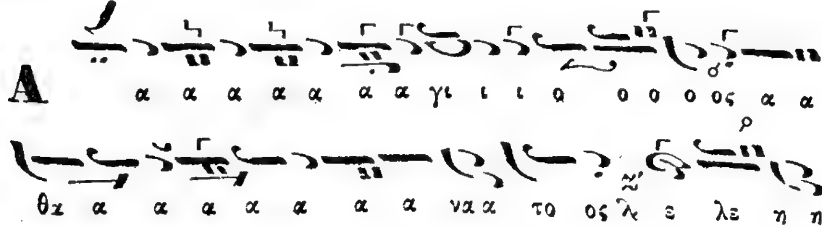 Α α α α α α α α γι ι ι ο ο ο ο ος α α
θα α α α α α α α να α το ος λ ε λε η η